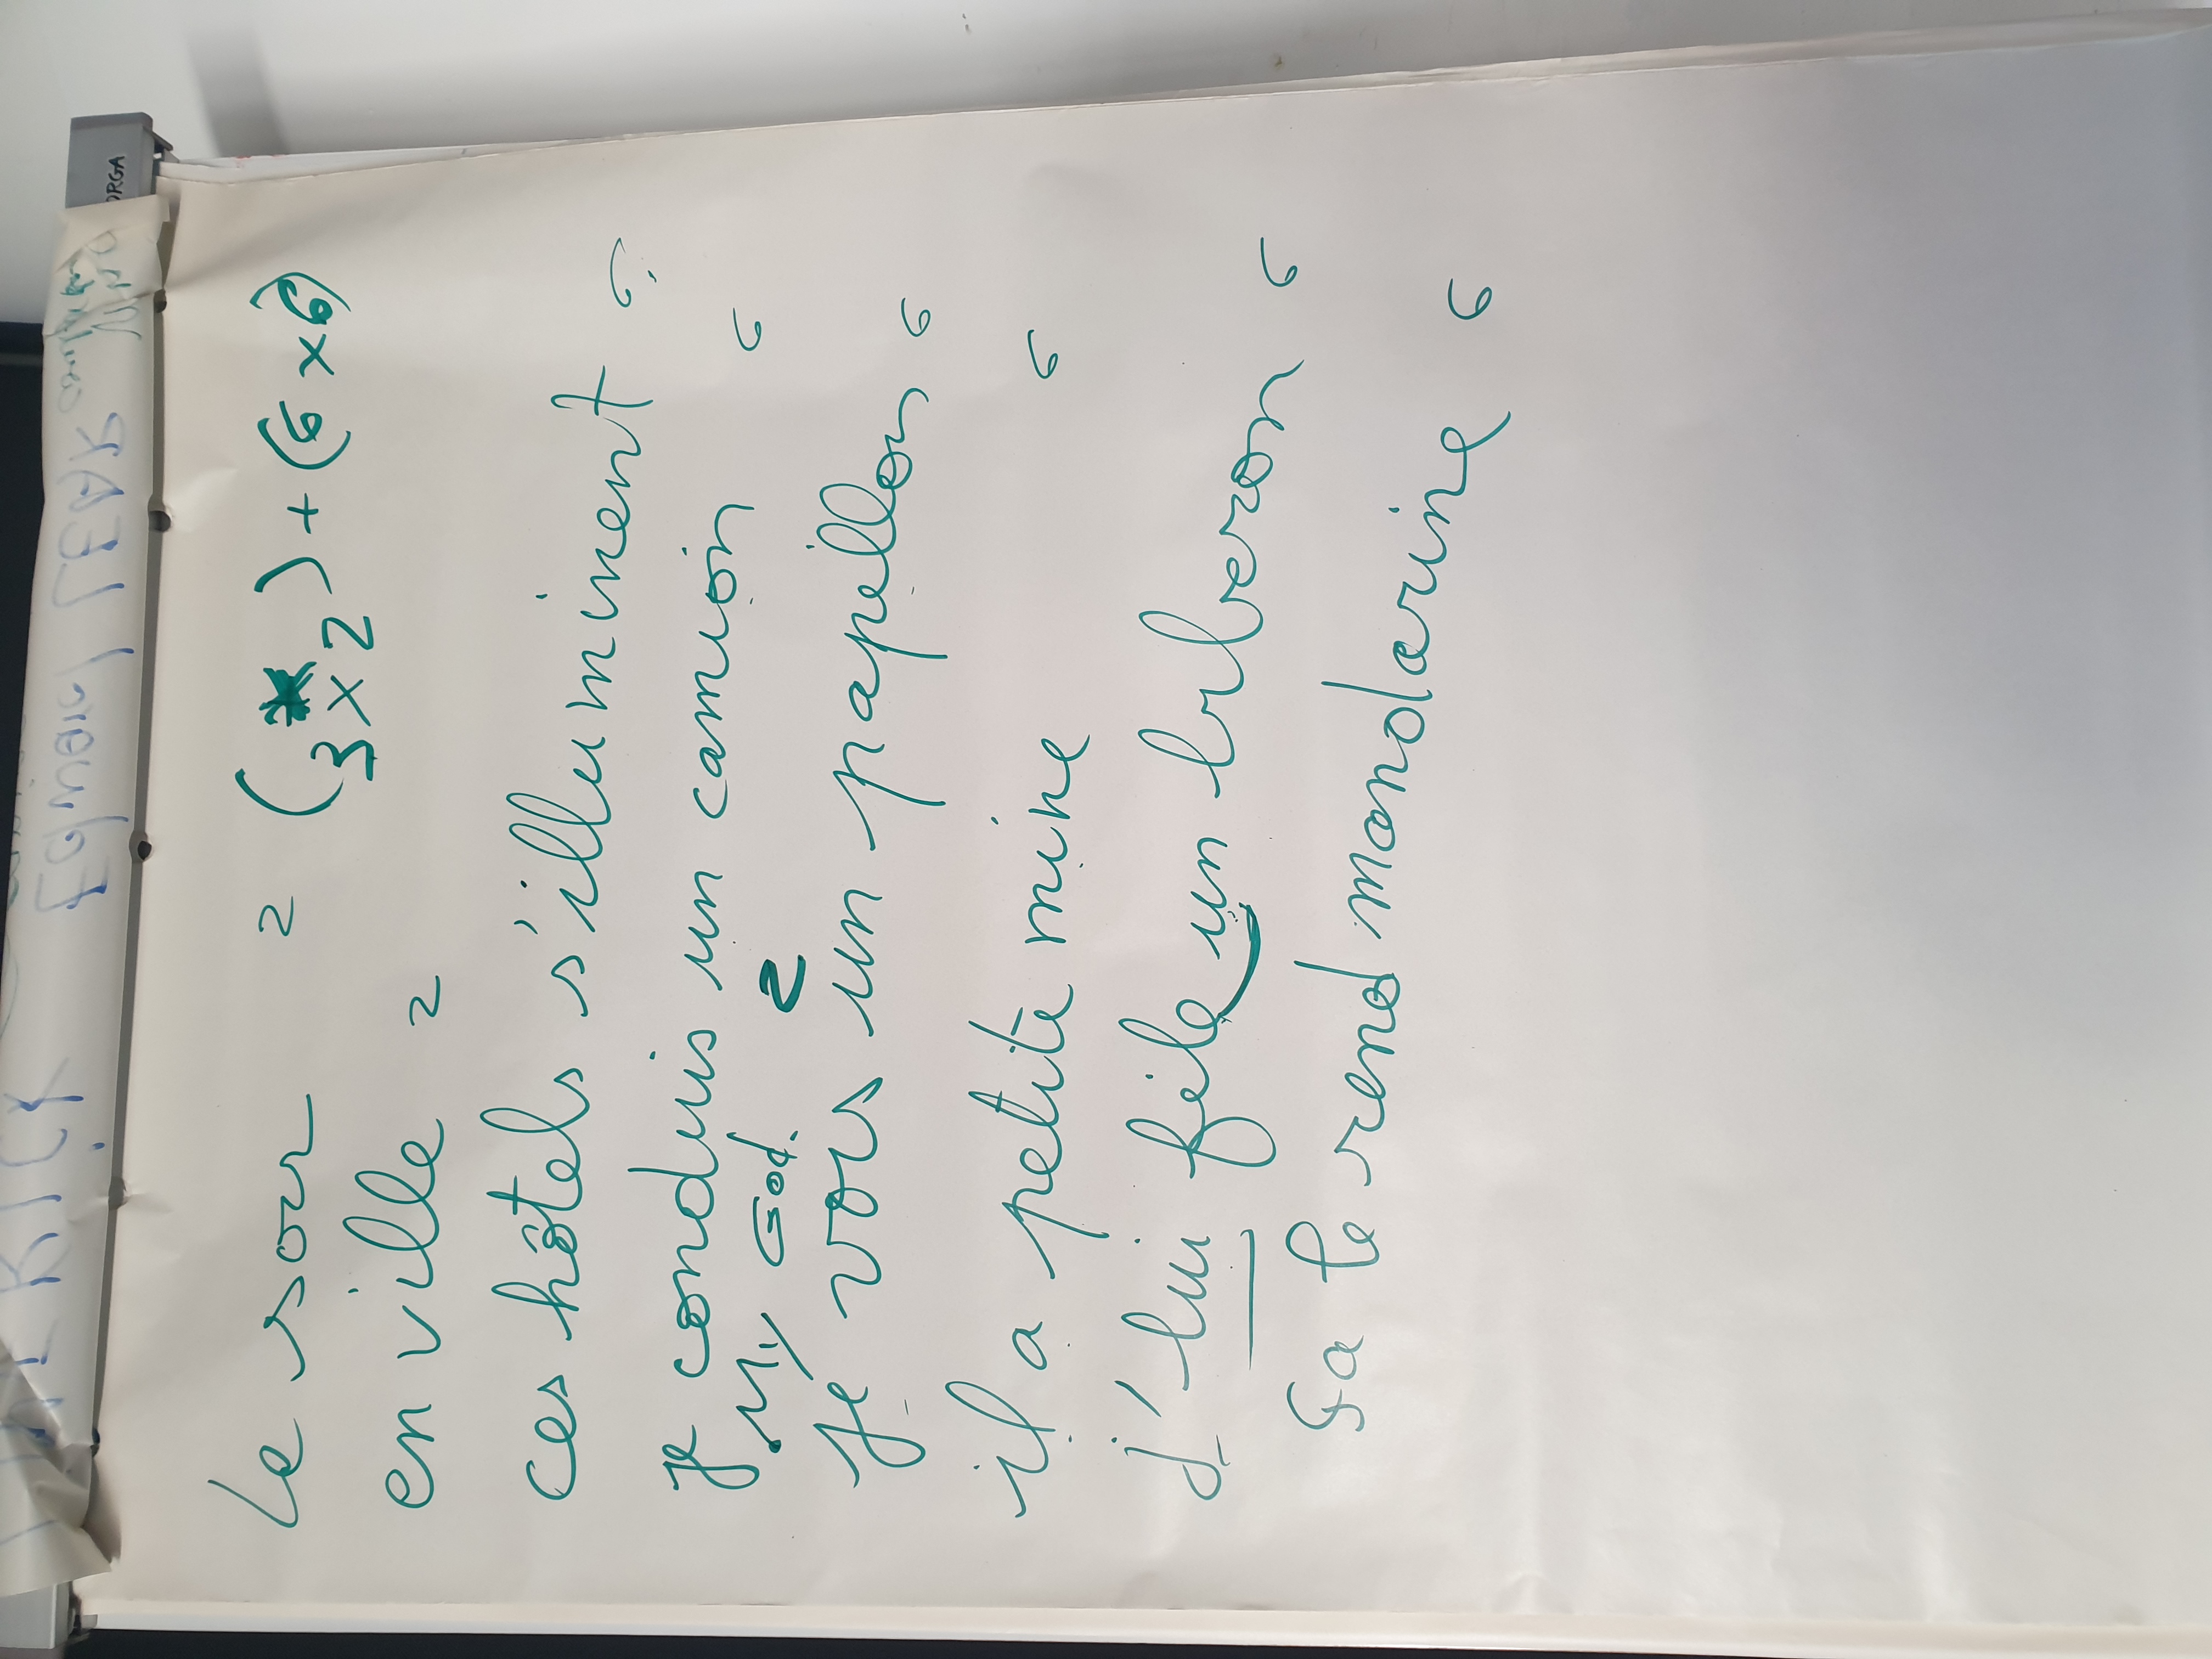 Le soir 2 (3 x 2) + (6 x 6)
en ville 2
ces hôtels s'illuminent 6
je conduis un camion 6
My God. 2
je vois un papillon 6
il a petite mine 6
j'lui file un biberon 6
ça le rend mandarine 6
ORGA